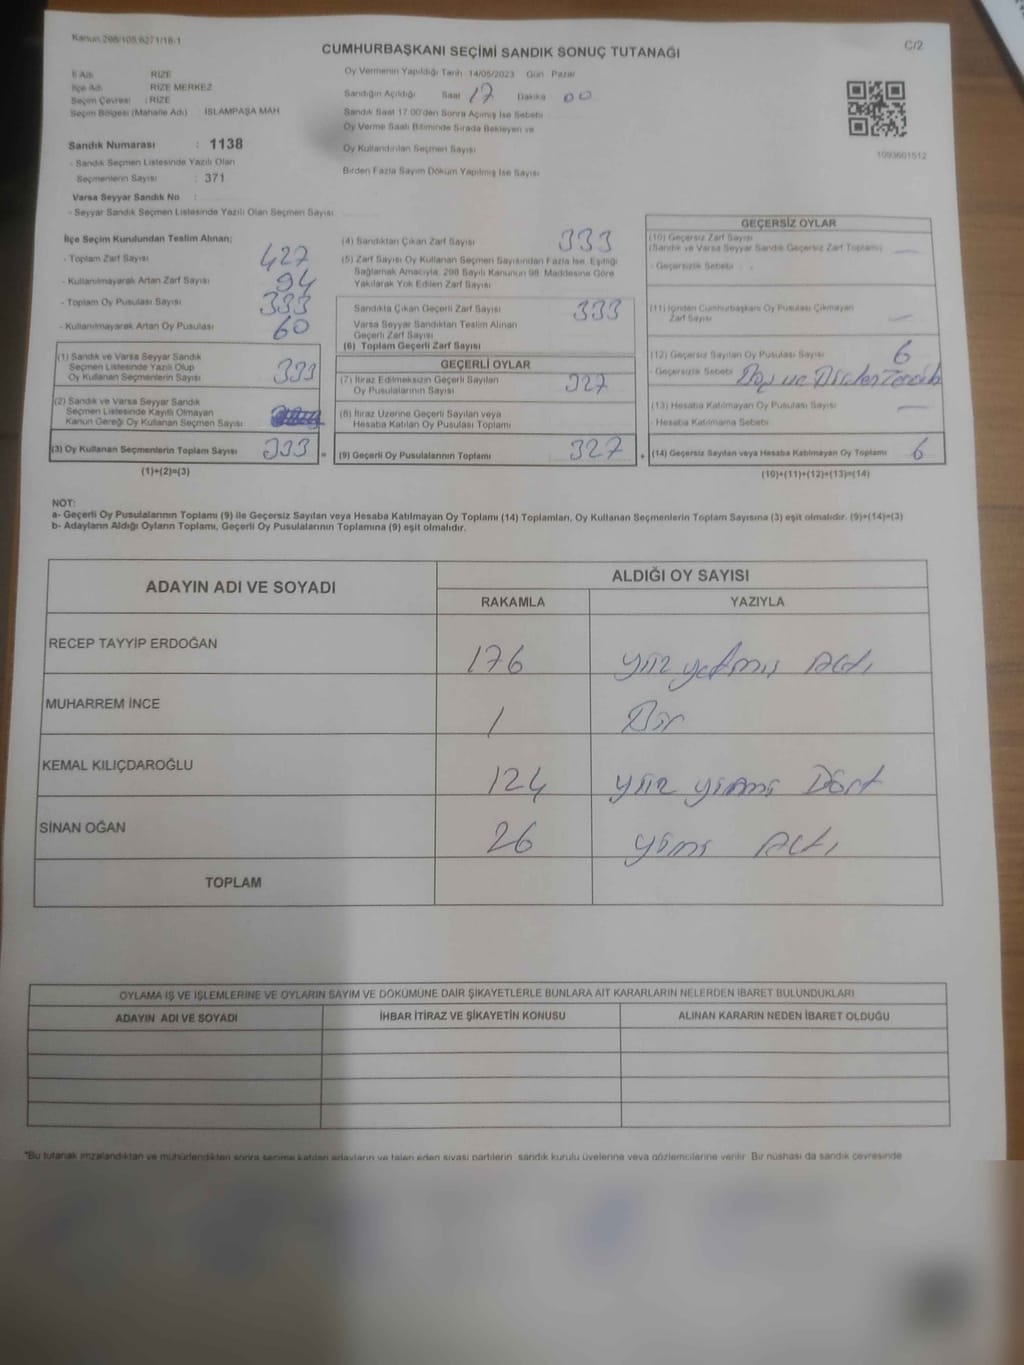 Kanun:298/105,6271/18-1
C/2
CUMHURBAŞKANI SEÇİMİ SANDIK SONUÇ TUTANAĞI
İl Adı RİZE
İlçe Adı RİZE MERKEZ
Seçim Çevresi : RİZE
Seçim Bölgesi (Mahalle Adı) İSLAMPAŞA MAH
Sandık Numarası : 1138
- Sandık Seçmen Listesinde Yazılı Olan
Seçmenlerin Sayısı : 371
Varsa Seyyar Sandık No :
- Seyyar Sandık Seçmen Listesinde Yazılı Olan Seçmen Sayısı
Oy Vermenin Yapıldığı Tarih 14/05/2023 Gün Pazar
Sandığın Açıldığı Saat 17 Dakika 00
Sandık Saat 17.00'den Sonra Açılmış İse Sebebi
Oy Verme Saati Bitiminde Sırada Bekleyen ve
Oy Kullandırılan Seçmen Sayısı
Birden Fazla Sayım Döküm Yapılmış İse Sayısı
1093601512
İlçe Seçim Kurulundan Teslim Alınan;
- Toplam Zarf Sayısı 427
- Kullanılmayarak Artan Zarf Sayısı 94
- Toplam Oy Pusulası Sayısı 333
- Kullanılmayarak Artan Oy Pusulası 60
(1) Sandık ve Varsa Seyyar Sandık
Seçmen Listesinde Yazılı Olup
Oy Kullanan Seçmenlerin Sayısı 333
(2) Sandık ve Varsa Seyyar Sandık
Seçmen Listesinde Kayıtlı Olmayan
Kanun Gereği Oy Kullanan Seçmen Sayısı
(3) Oy Kullanan Seçmenlerin Toplam Sayısı 333 =
(1)+(2)=(3)
(4) Sandıktan Çıkan Zarf Sayısı 333
(5) Zarf Sayısı Oy Kullanan Seçmen Sayısından Fazla İse, Eşitliği
Sağlamak Amacıyla, 298 Sayılı Kanunun 98. Maddesine Göre
Yakılarak Yok Edilen Zarf Sayısı
Sandıkta Çıkan Geçerli Zarf Sayısı 333
Varsa Seyyar Sandıktan Teslim Alınan
Geçerli Zarf Sayısı
(6) Toplam Geçerli Zarf Sayısı
GEÇERLİ OYLAR
(7) İtiraz Edilmeksizin Geçerli Sayılan
Oy Pusulalarının Sayısı 327
(8) İtiraz Üzerine Geçerli Sayılan veya
Hesaba Katılan Oy Pusulası Toplamı
(9) Geçerli Oy Pusulalarının Toplamı 327 +
GEÇERSİZ OYLAR
(10) Geçersiz Zarf Sayısı
(Sandık ve Varsa Seyyar Sandık Geçersiz Zarf Toplamı) —
- Geçersizlik Sebebi :
(11) İçinden Cumhurbaşkanı Oy Pusulası Çıkmayan
Zarf Sayısı —
(12) Geçersiz Sayılan Oy Pusulası Sayısı 6
- Geçersizlik Sebebi
(13) Hesaba Katılmayan Oy Pusulası Sayısı —
- Hesaba Katılmama Sebebi
(14) Geçersiz Sayılan veya Hesaba Katılmayan Oy Toplamı 6
(10)+(11)+(12)+(13)=(14)
NOT:
a- Geçerli Oy Pusulalarının Toplamı (9) ile Geçersiz Sayılan veya Hesaba Katılmayan Oy Toplamı (14) Toplamları, Oy Kullanan Seçmenlerin Toplam Sayısına (3) eşit olmalıdır. (9)+(14)=(3)
b- Adayların Aldığı Oyların Toplamı, Geçerli Oy Pusulalarının Toplamına (9) eşit olmalıdır.
ADAYIN ADI VE SOYADI
ALDIĞI OY SAYISI
RAKAMLA YAZIYLA
RECEP TAYYİP ERDOĞAN 176 yüz yetmiş Altı
MUHARREM İNCE 1 Bir
KEMAL KILIÇDAROĞLU 124 yüz yirmi Dört
SİNAN OĞAN 26 yirmi Altı
TOPLAM
OYLAMA İŞ VE İŞLEMLERİNE VE OYLARIN SAYIM VE DÖKÜMÜNE DAİR ŞİKAYETLERLE BUNLARA AİT KARARLARIN NELERDEN İBARET BULUNDUKLARI
ADAYIN ADI VE SOYADI İHBAR İTİRAZ VE ŞİKAYETİN KONUSU ALINAN KARARIN NEDEN İBARET OLDUĞU
*Bu tutanak imzalandıktan ve mühürlendikten sonra seçime katılan adayların ve talep eden siyasi partilerin, sandık kurulu üyelerine veya gözlemcilerine verilir. Bir nüshası da sandık çevresinde